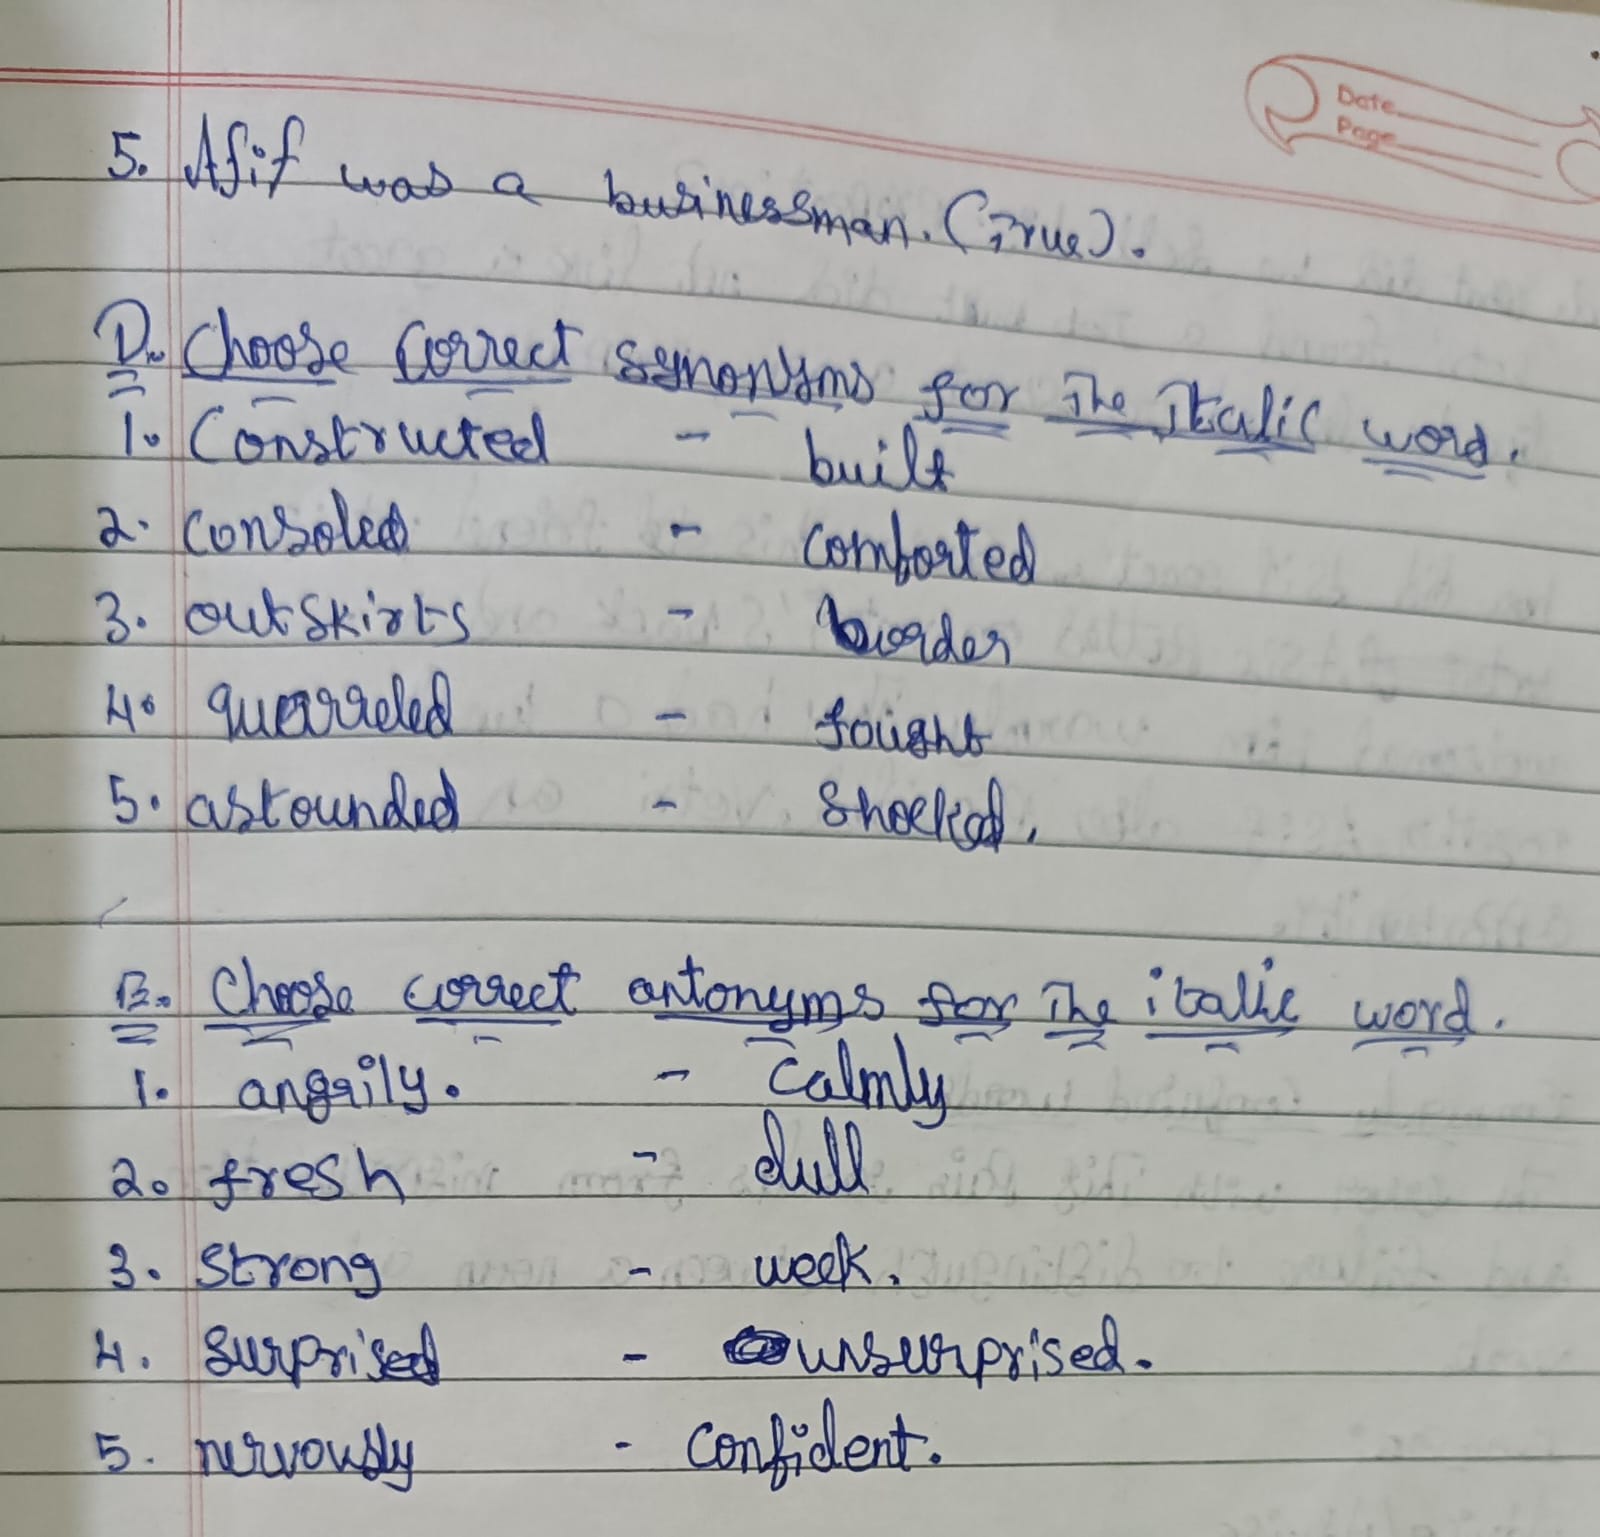 Date
Page
5. Afif was a businessman. (True).
D. Choose Correct synonyms for The Italic word.
1. Constructed - built
2. Consoled - comforted
3. outskirts - border
4. quarreled - fought
5. astounded - Shocked.
E. Choose correct antonyms for The italic word.
1. angrily. - Calmly
2. fresh - dull
3. Strong - week.
4. Surprised - unsurprised.
5. nervously - Confident.